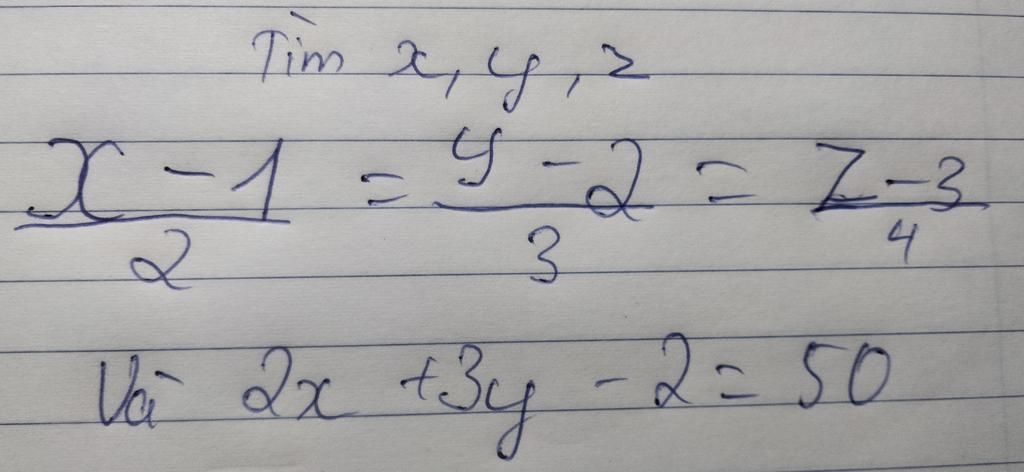 Tìm x, y, z
x - 1 / 2 = y - 2 / 3 = z - 3 / 4
Và 2x + 3y - 2 = 50